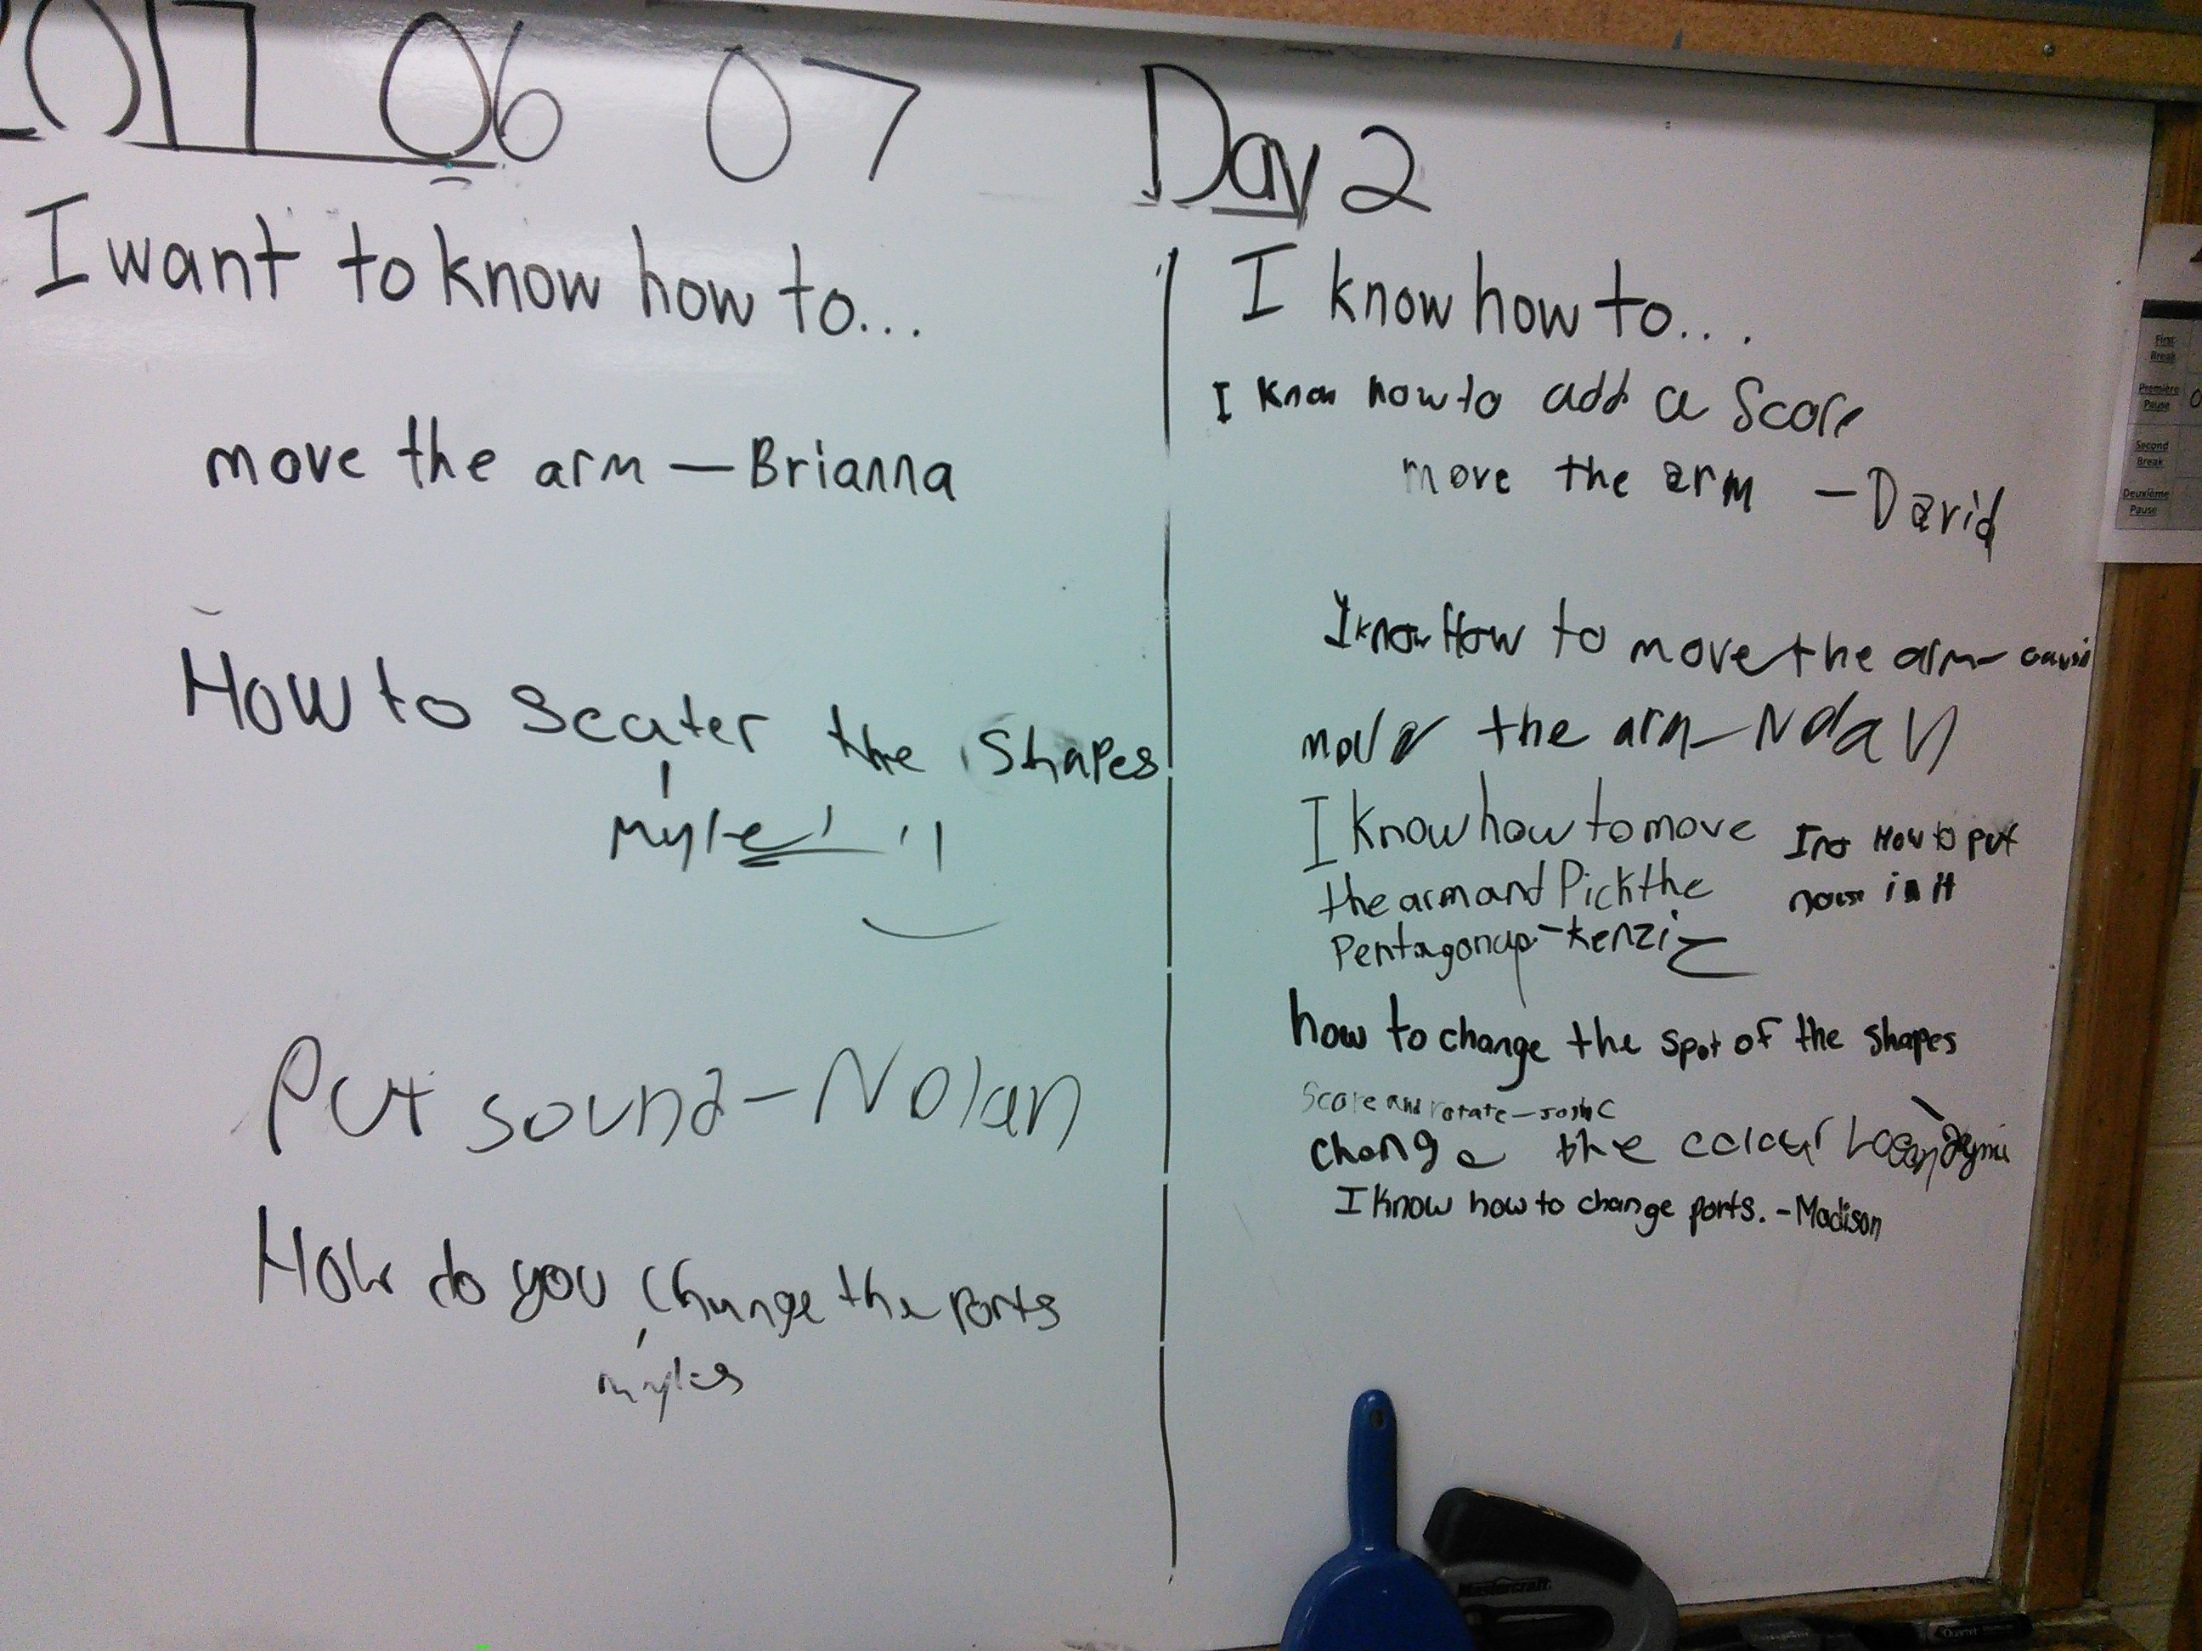 2017 06 07 Day 2
I want to know how to...
move the arm - Brianna
How to Scater the Shapes
Put sound - Nolan
How do you Change the Ports
myles
I know how to...
I know how to add a Score
move the arm - David
I know How to move the arm -
move the arm - Nolan
I know how to move
the arm and Pick the
Pentagon up - Kenzie
How to put
in it
how to change the spot of the shapes
Score and rotate - Josh C
change the colour Logan
I know how to change ports. - Madison
First
Break
Première
Pause
Second
Break
Deuxième
Pause
Mastercraft